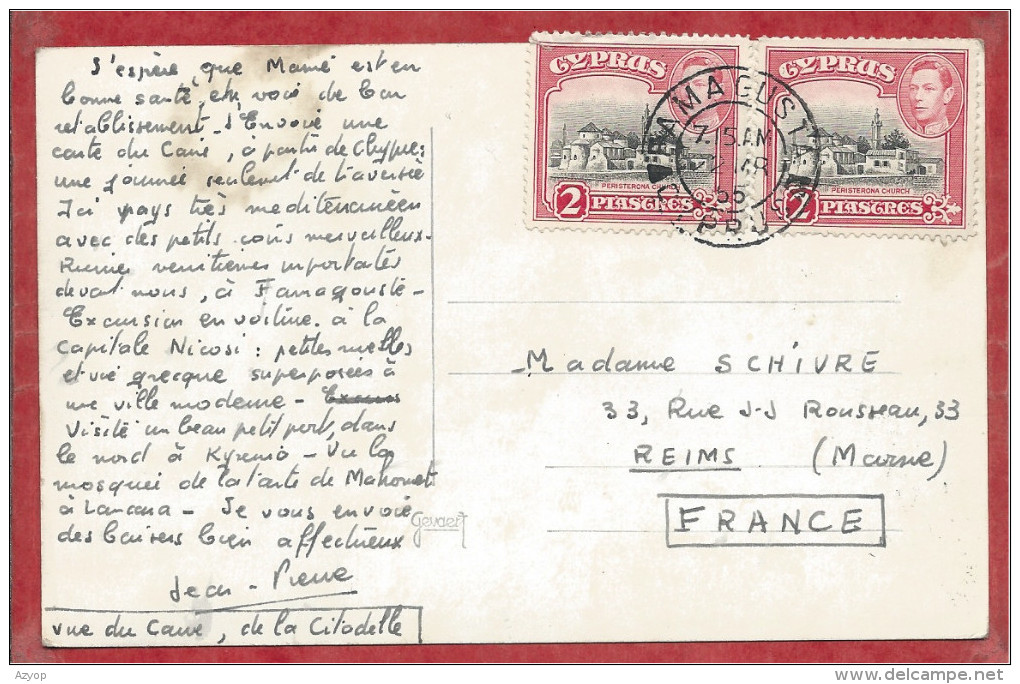 J'espère, que Mamé est en
bonne santé, en voie de bon
rétablissement - J'Envoie une
carte du Caire, à partir de Chypre:
une journée seulement de traversée
Ici pays très mediterranéen
avec des petits coins merveilleux.
Ruines venitiennes importates
devant nous, à Famagouste -
Excursion en voiture. à la
Capitale Nicosi : petites ruelles
et vie grecque superposées à
une ville moderne -
Visité un beau petit port, dans
le nord à Kyrenia - Vu la
mosquei de la tante de Mahomet
à Larcana - Je vous envoie
des baisers bien affectueux
Jean - Pierre
vue du Caire, de la Citadelle
Gevaert
CYPRUS
PERISTERONA CHURCH
2 PIASTRES
CYPRUS
PERISTERONA CHURCH
2 PIASTRES
FAMAGUSTA
7.15 AM
CYPRUS
Madame SCHIVRE
33, Rue J-J Rousseau, 33
REIMS (Marne)
FRANCE
Azyop
delcampe.net